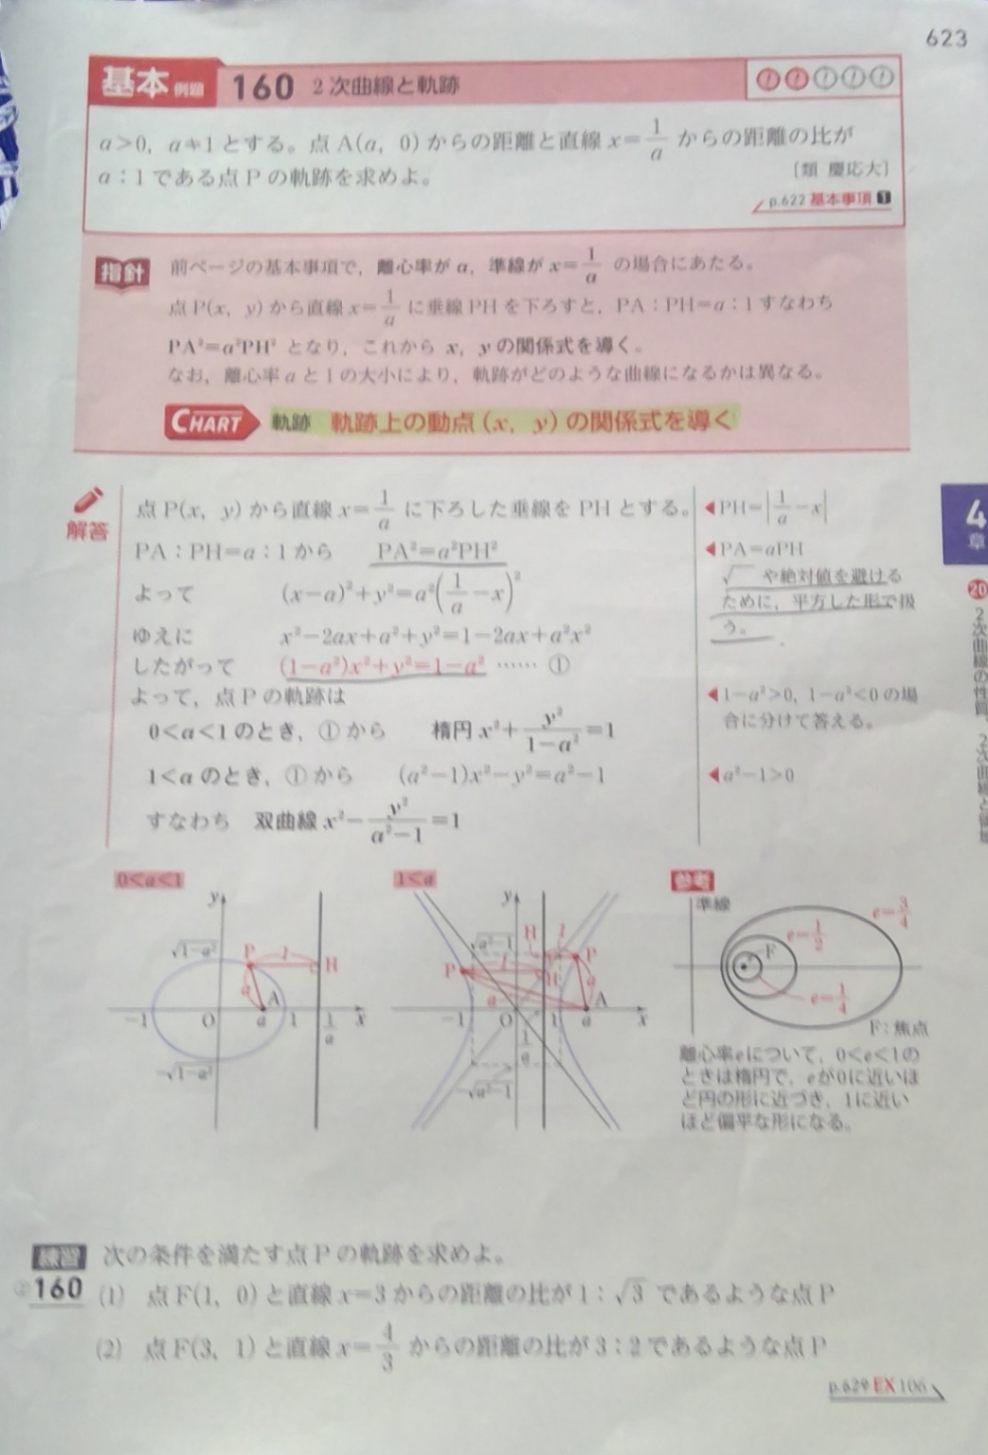 623
基本 例題 160 2次曲線と軌跡
a>0, a≠1とする。点A(a, 0)からの距離と直線x=1/aからの距離の比が
a：1である点Pの軌跡を求めよ。
〔類 慶応大〕
p.622 基本事項 1
指針 前ページの基本事項で，離心率がa，準線がx=1/aの場合にあたる。
点P(x, y)から直線x=1/aに垂線PHを下ろすと，PA：PH=a：1すなわち
PA²=a²PH² となり，これからx, yの関係式を導く。
なお，離心率aと1の大小により，軌跡がどのような曲線になるかは異なる。
CHART 軌跡 軌跡上の動点(x, y)の関係式を導く
解答
点P(x, y)から直線x=1/aに下ろした垂線をPHとする。
PA：PH=a：1から PA²=a²PH²
よって (x-a)²+y²=a²(1/a-x)²
ゆえに x²-2ax+a²+y²=1-2ax+a²x²
したがって (1-a²)x²+y²=1-a² …… ①
よって，点Pの軌跡は
0<a<1のとき，①から 楕円 x²+y²/(1-a²)=1
1<aのとき，①から (a²-1)x²-y²=a²-1
すなわち 双曲線 x²-y²/(a²-1)=1
◀PH=|1/a-x|
◀PA=aPH
√ や絶対値を避ける
ために，平方した形で扱
う。
◀1-a²>0, 1-a²<0の場
合に分けて答える。
◀a²-1>0
4
章
20
2次曲線の性質，2次曲線と領域
0<a<1
y
√1-a²
P 1 H
a
A
-1 O a 1 1/a x
-√1-a²
1<a
y
√a²-1
H 1
P 1 H P
a a
A
-1 O 1 a x
1/a
-√a²-1
参考
準線
e=3/4
e=1/2
F
e=1/4
F：焦点
離心率eについて，0<e<1の
ときは楕円で，eが0に近いほ
ど円の形に近づき，1に近い
ほど偏平な形になる。
練習 次の条件を満たす点Pの軌跡を求めよ。
②160 (1) 点F(1, 0)と直線x=3からの距離の比が1：√3であるような点P
(2) 点F(3, 1)と直線x=4/3からの距離の比が3：2であるような点P
p.629 EX 106